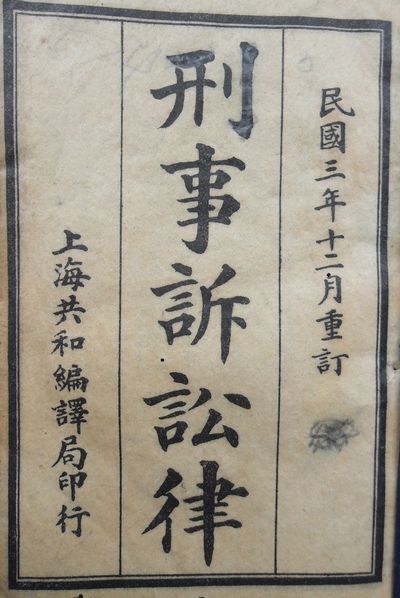 民國三年十二月重訂
刑事訴訟律
上海共和編譯局印行